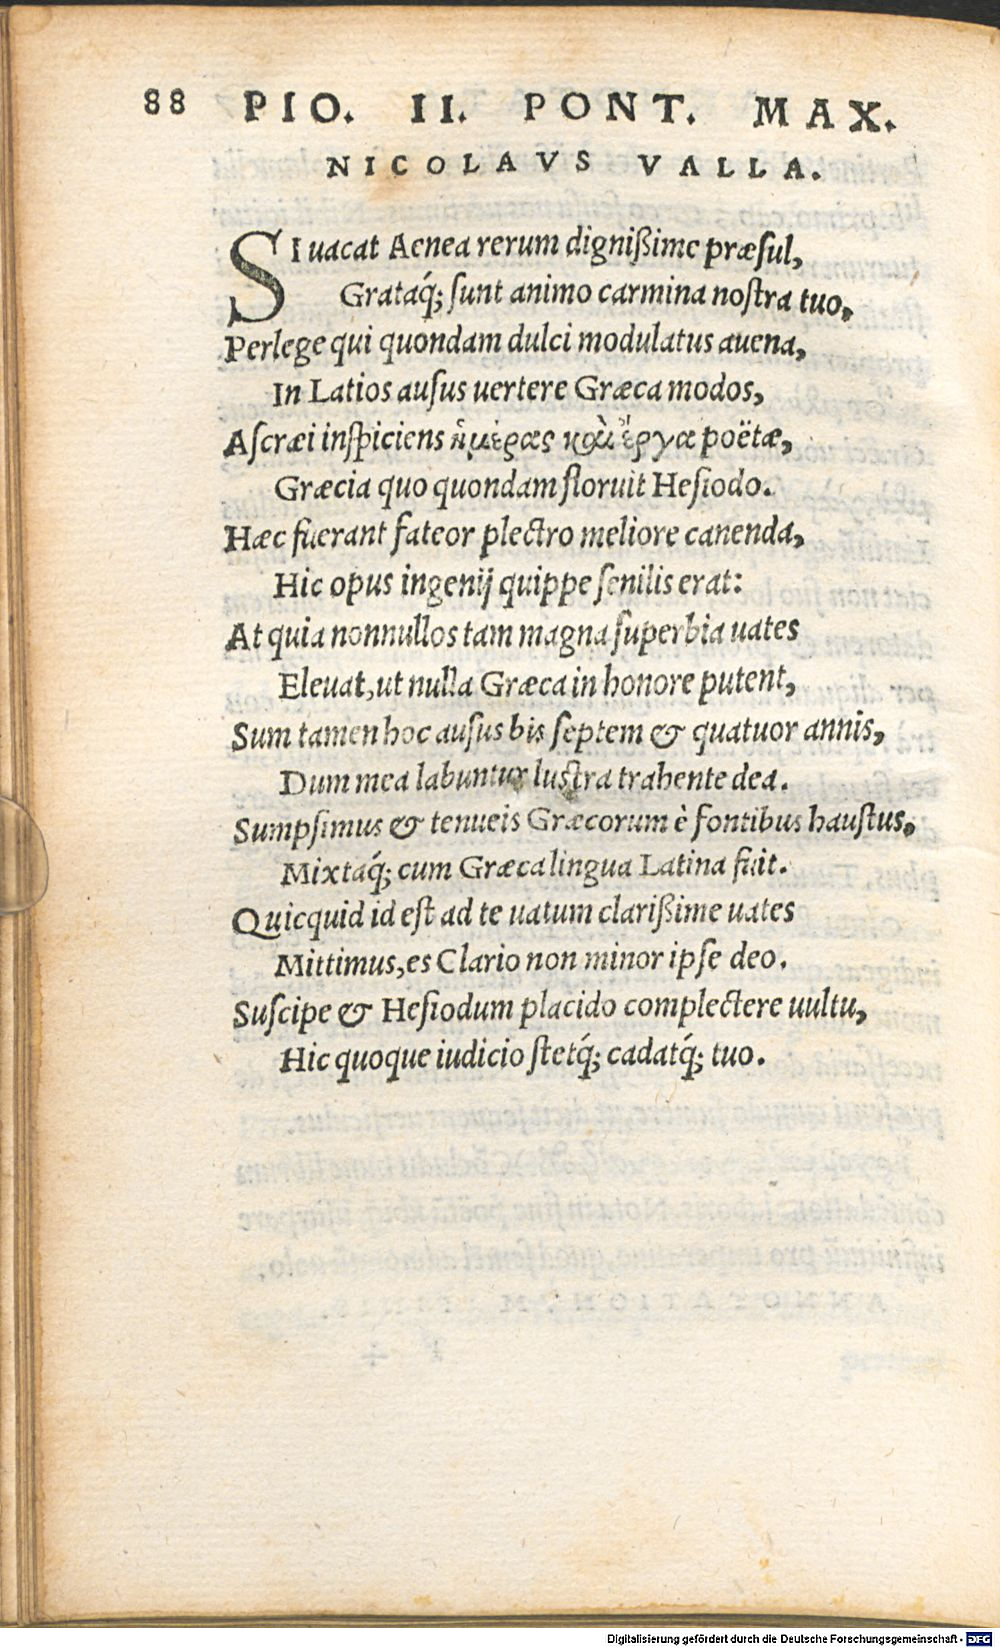 88 PIO. II. PONT. MAX.
NICOLAVS VALLA.
SI uacat Aenea rerum dignißime præsul,
Grataq́; sunt animo carmina nostra tuo,
Perlege qui quondam dulci modulatus auena,
In Latios ausus uertere Græca modos,
Ascræi inspiciens ἡμέρας καὶ ἔργα poëtæ,
Græcia quo quondam floruit Hesiodo.
Hæc fuerant fateor plectro meliore canenda,
Hic opus ingenij quippe senilis erat:
At quia nonnullos tam magna superbia uates
Eleuat, ut nulla Græca in honore putent,
Sum tamen hoc ausus bis septem & quatuor annis,
Dum mea labuntur lustra trahente dea.
Sumpsimus & tenueis Græcorum è fontibus haustus,
Mixtaq́; cum Græca lingua Latina fuit.
Quicquid id est ad te uatum clarißime uates
Mittimus, es Clario non minor ipse deo.
Suscipe & Hesiodum placido complectere uultu,
Hic quoque iudicio stetq́; cadatq́; tuo.
Digitalisierung gefördert durch die Deutsche Forschungsgemeinschaft - DFG